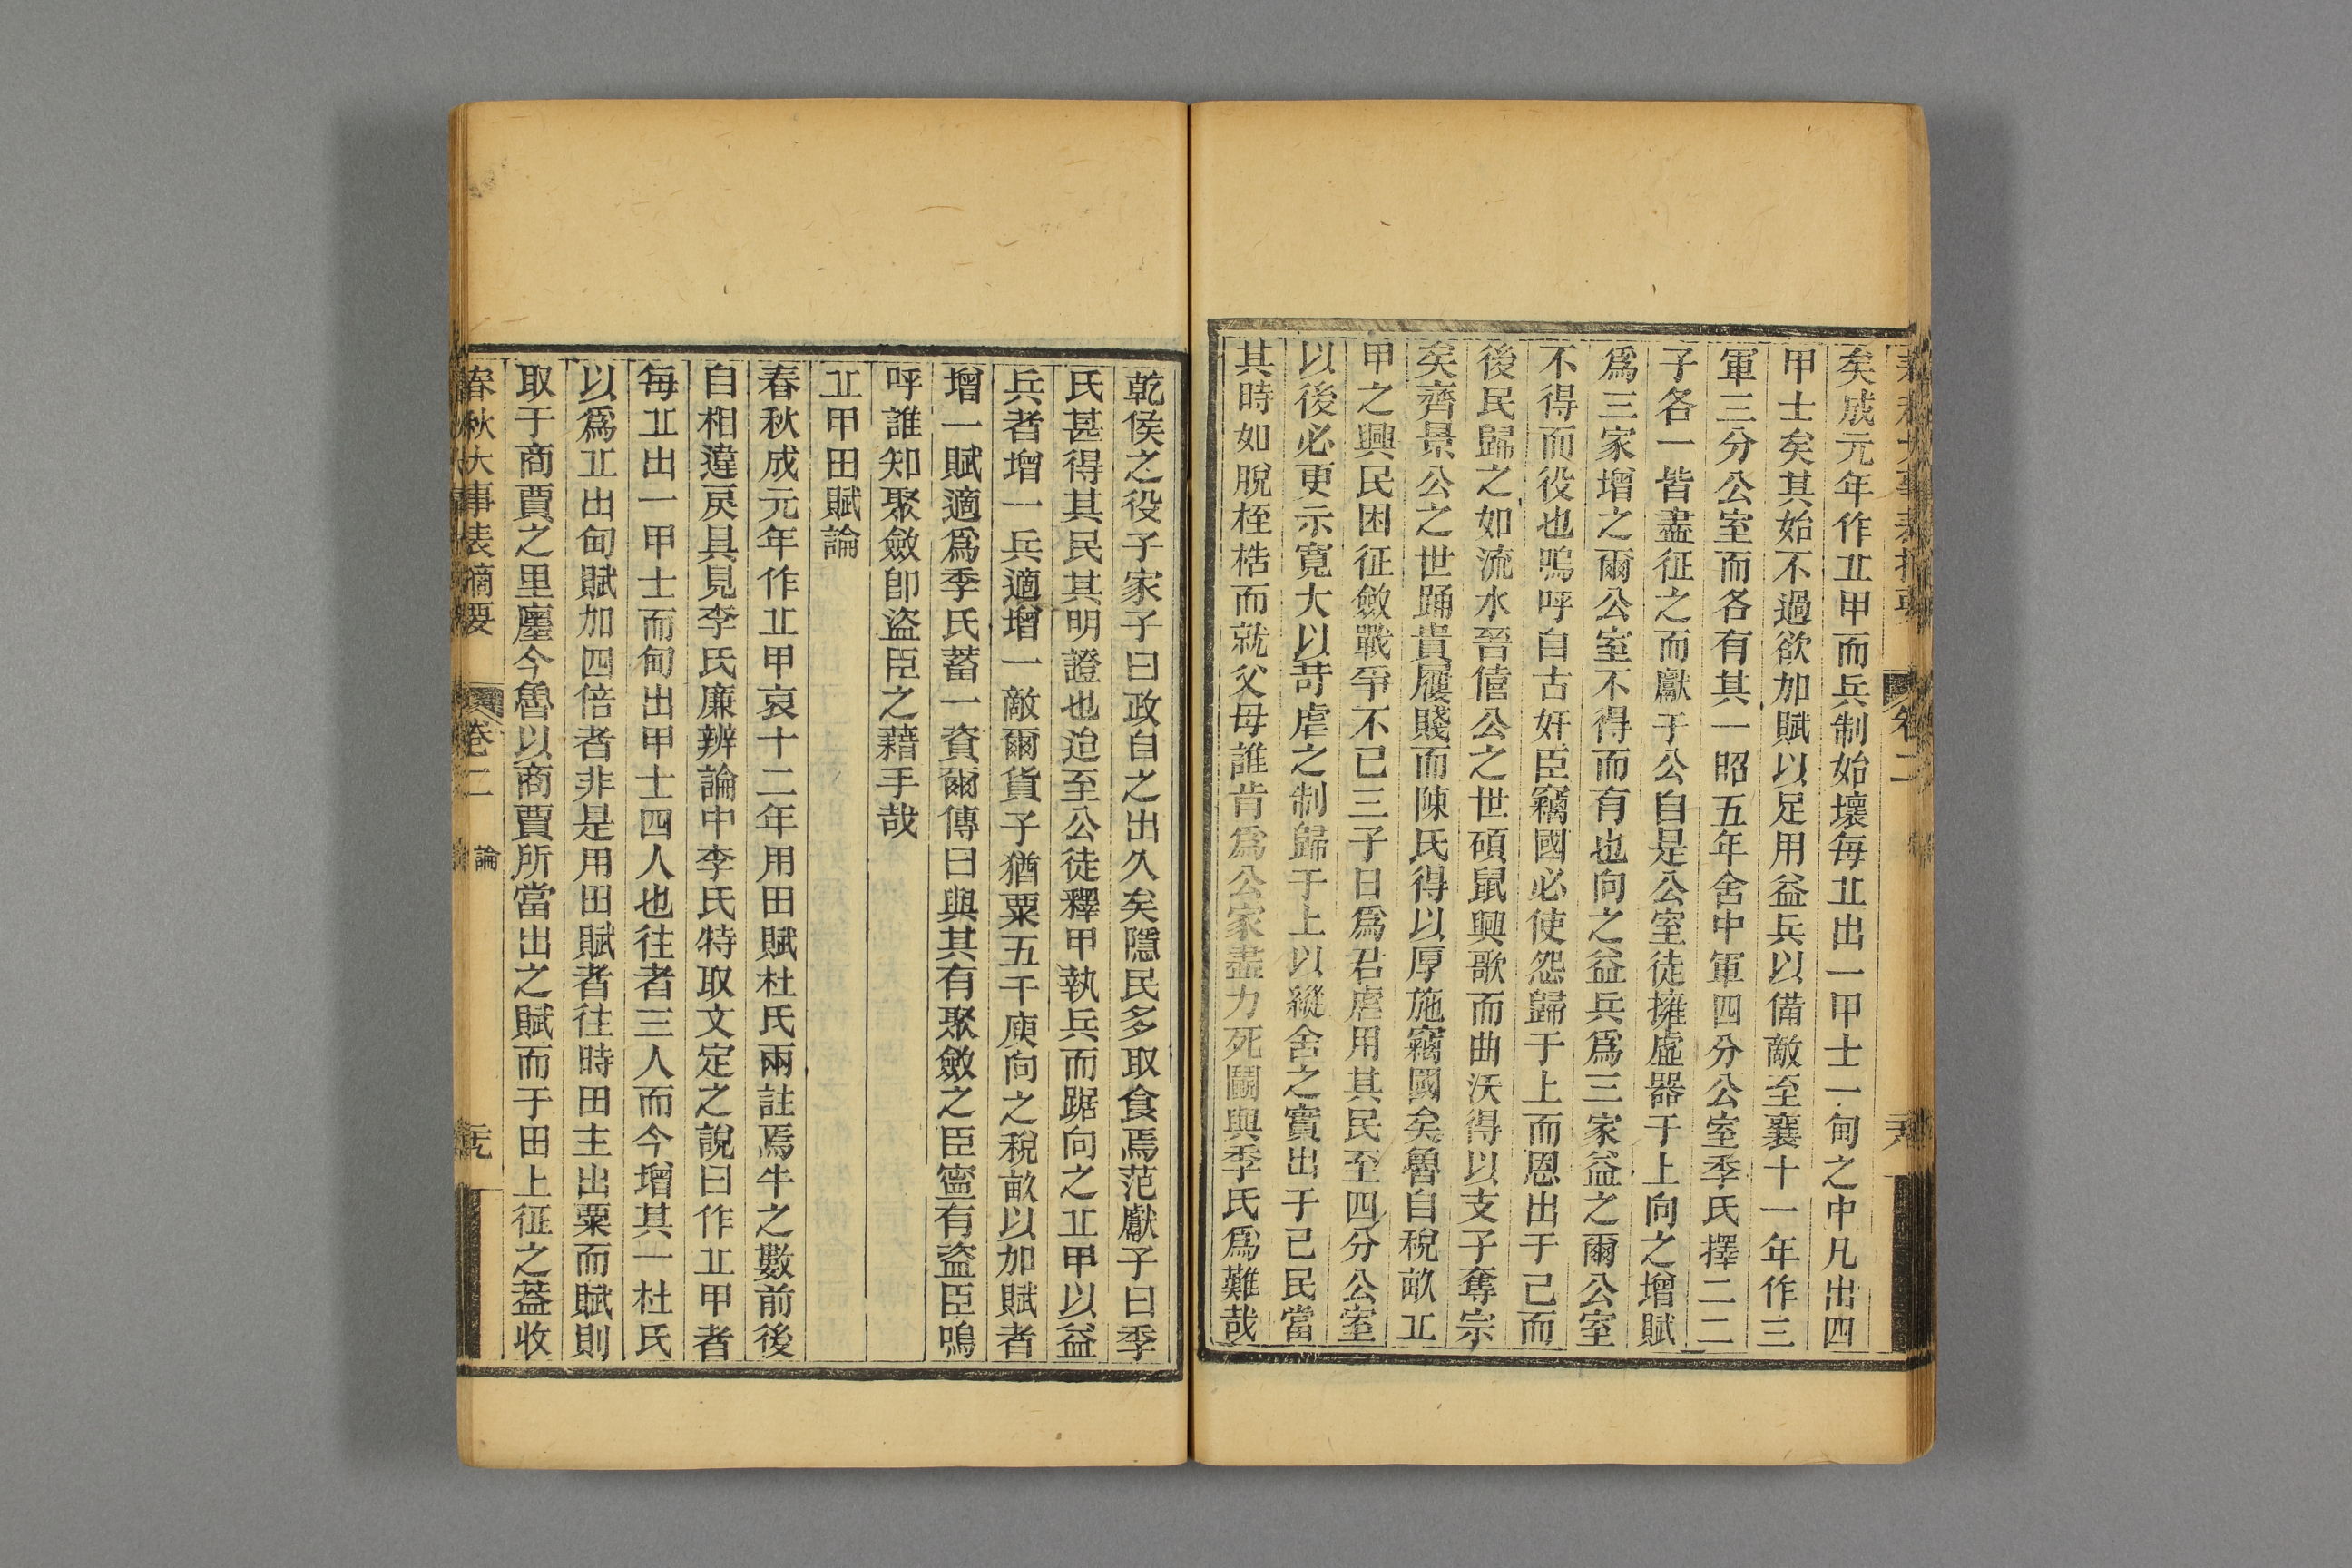 矣成元年作丠甲而兵制始壞每丠出一甲士一甸之中凡出四
甲士矣其始不過欲加賦以足用益兵以備敵至襄十一年作三
軍三分公室而各有其一昭五年舍中軍四分公室季氏擇二二
子各一皆盡征之而獻于公自是公室徒擁虛器于上向之增賦
爲三家增之爾公室不得而有也向之益兵爲三家益之爾公室
不得而役也嗚呼自古奸臣竊國必使怨歸于上而恩出于己而
後民歸之如流水晉僖公之世碩鼠興歌而曲沃得以支子奪宗
矣齊景公之世踊貴屨賤而陳氏得以厚施竊國矣魯自稅畝丠
甲之興民困征斂戰爭不已三子日爲君虐用其民至四分公室
以後必更示寬大以苛虐之制歸于上以縱舍之實出于己民當
其時如脫桎梏而就父母誰肯爲公家盡力死鬭與季氏爲難哉
乾侯之役子家子曰政自之出久矣隱民多取食焉范獻子曰季
氏甚得其民其明證也迨至公徒釋甲執兵而踞向之丠甲以益
兵者增一兵適增一敵爾貨子猶粟五千庾向之稅畝以加賦者
增一賦適爲季氏蓄一資爾傳曰與其有聚斂之臣寧有盜臣嗚
呼誰知聚斂卽盜臣之藉手哉
丠甲田賦論
春秋成元年作丠甲哀十二年用田賦杜氏兩註焉牛之數前後
自相違戾具見李氏廉辨論中李氏特取文定之說曰作丠甲者
每丠出一甲士而甸出甲士四人也往者三人而今增其一杜氏
以爲丠出甸賦加四倍者非是用田賦者往時田主出粟而賦則
取于商賈之里廛今魯以商賈所當出之賦而于田上征之葢收
春秋大事表摘要 卷二 論